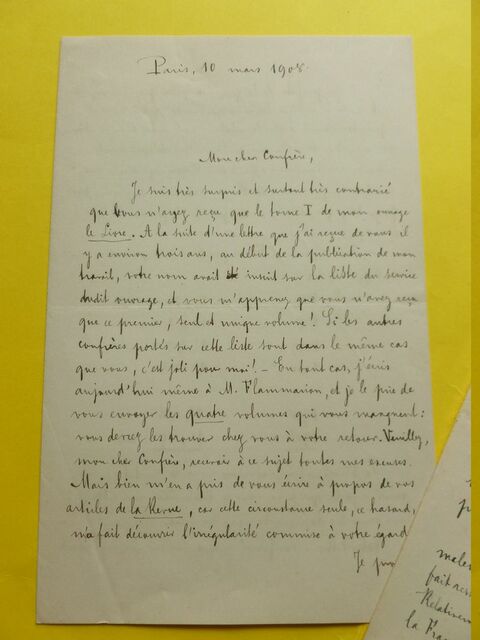 Paris, 10 mars 1908.
Mon cher Confrère,
Je suis très surpris et surtout très contrarié
que vous n'ayez reçu que le tome I de mon ouvrage
le Livre. A la suite d'une lettre que j'ai reçue de vous il
y a environ trois ans, au début de la publication de mon
travail, votre nom avait été inscrit sur la liste du service
dudit ouvrage, et vous m'apprenez que vous n'avez reçu
que ce premier, seul et unique volume! Si les autres
confrères portés sur cette liste sont dans le même cas
que vous, c'est joli pour moi! – En tout cas, j'écris
aujourd'hui même à M. Flammarion, et je le prie de
vous envoyer les quatre volumes qui vous manquent:
vous devez les trouver chez vous à votre retour. Veuillez,
mon cher Confrère, recevoir à ce sujet toutes mes excuses.
Mais bien m'en a pris de vous écrire à propos de vos
articles de la Revue, car cette circonstance seule, ce hasard,
m'a fait découvrir l'irrégularité commise à votre égard
Je
males
fait
Relativem
la Fran